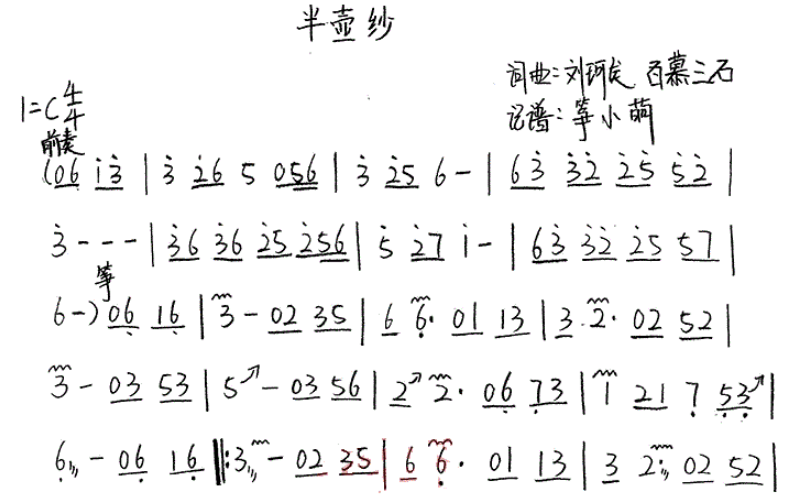 半壶纱
词曲:刘珂矣 百慕三石
1=C 4/4
记谱:筝小萌
前奏
(06 1̇3̇ | 3̇ 2̇6 5 056 | 3̇ 2̇5 6 - | 63̇ 3̇2̇ 2̇5̇ 5̇2̇ |
3̇ - - - | 3̇6 3̇6 2̇5 2̇56 | 5̇ 2̇7 1̇ - | 63̇ 3̇2̇ 2̇5 57 |
筝
6 -) 06̣ 16̣ | 3 - 02 35 | 6 6̣· 01 13 | 3 2· 02 52 |
3 - 03 53 | 5↗ - 03 56 | 2↗ 2· 06̣ 7̣3 | 1 21 7̣ 5̣3̣↗ |
6̣ - 06̣ 16̣ ‖: 3 - 02 35 | 6 6̣· 01 13 | 3 2· 02 52 |